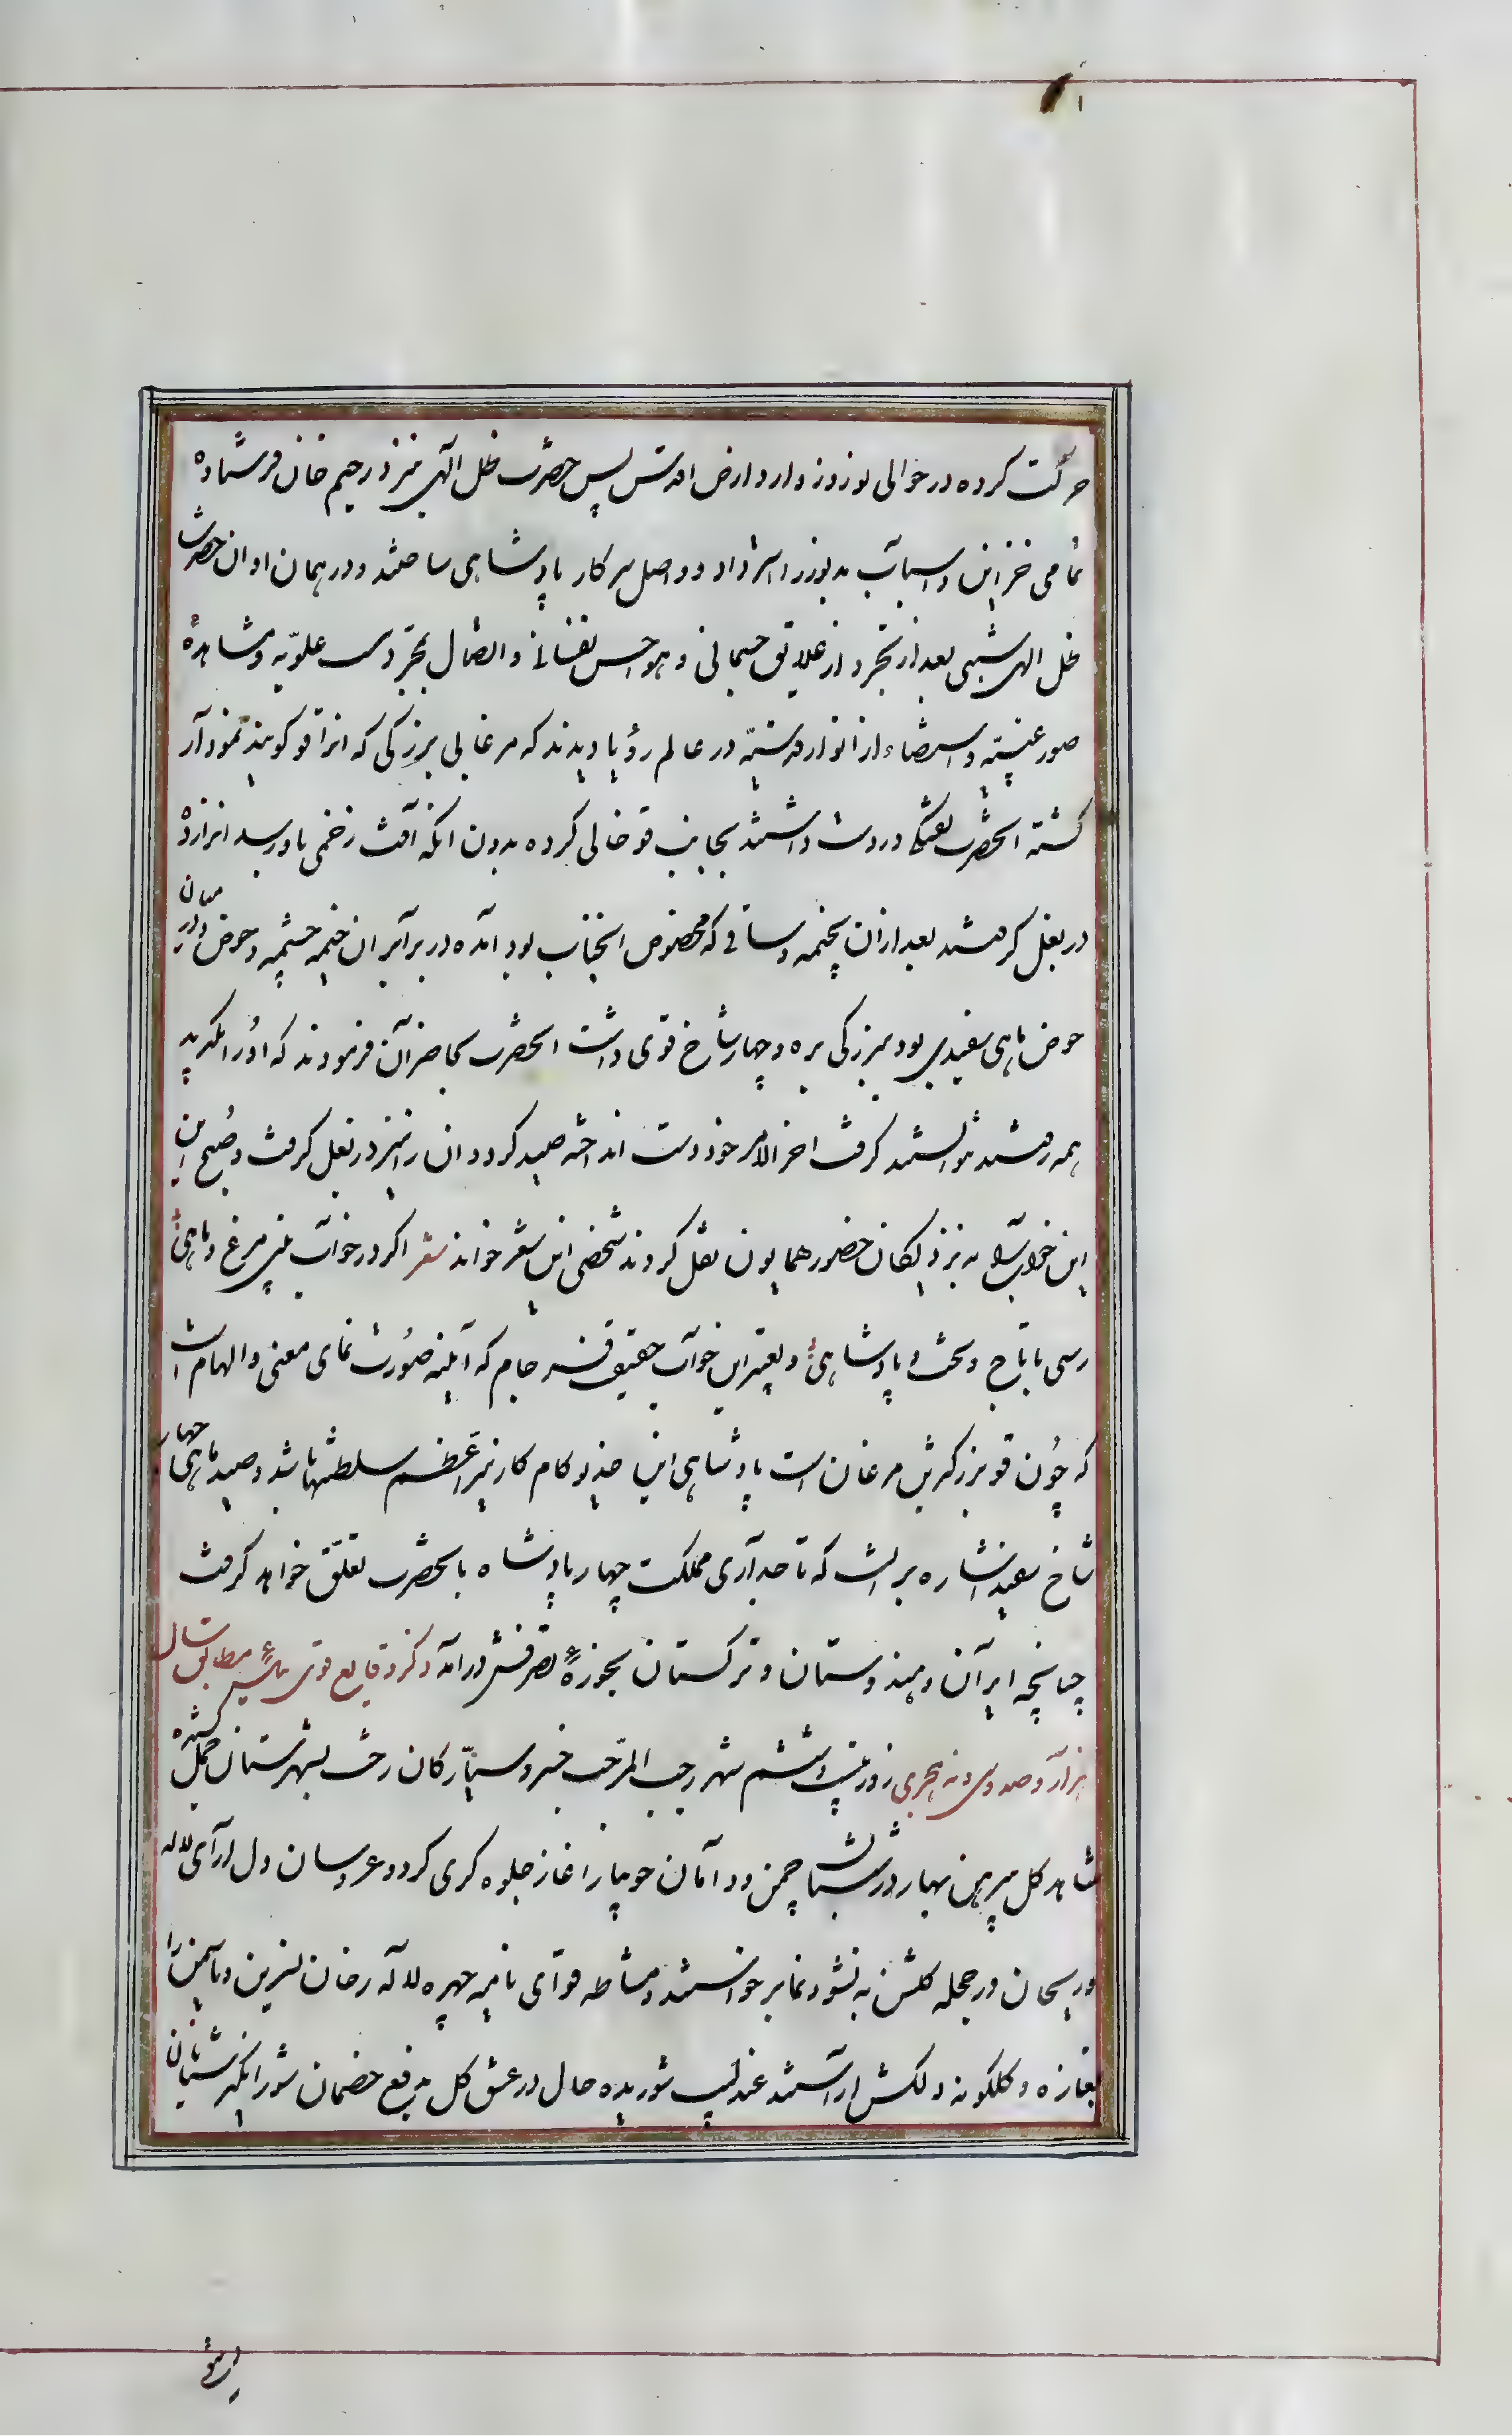 حرکت کرده در حوالی نوروز وارد ارض اقدس پس حضرت ظل الهی نیز رحیم خان فرستاده
تمامی خزاین و اسباب مذبور را استرداد و واصل سرکار پادشاهی ساختند و در همان اوان حضرت
ظل الهی شبی بعد از تجرد از علایق جسمانی و هواجس نفسانی و اتصال بمجردات علویه و مشاهدهٔ
صور غیبیه و استضاء از انوار قدسیه در عالم رؤیا دیدند که مرغابی بزرگی که انرا قو گویند نمودار
گشته انحضرت تفنگی در دست داشتند بجانب قو خالی کرده بدون انکه آفت زخمی باو رسد انرا زده
در بغل گرفتند بعد از ان بخیمه وساقی که مخصوص انجناب بود آمده در برابر ان خیمه چشمه و حوضی و در میان
حوض ماهی سفیدی بود ببزرکی بره و چهار شاخ قوی داشت انحضرت بحاضران فرمودند که اورا بگیرید
همه رفتند نتوانستند گرفت اخر الامر خود دست انداخته صید کرد و ان را نیز در بغل گرفت و صبح این
این خواب را به نزدیکان حضور همایون نقل کردند شخصی این شعر خواند شعر اکر در خواب بینی مرغ و ماهی
رسی با تاج و تخت و پادشاهی و تعبیر این خواب حقیقت فرجام که آیینه صورت نمای معنی و الهام است
که چون قو بزرگترین مرغان است پادشاهی این خدیو کامکار نیز اعظم سلطنتها باشد و صید ماهی چهار
شاخ سفید اشاره بر انست که تاجداری مملکت چهار پادشاه بانحضرت تعلق خواهد گرفت
چنانچه ایران و هندوستان و ترکستان بحوزهٔ تصرفش درآمد ذکر وقایع قوی ئیل مطابق سال
هزار و صد و سی و نه هجری روز بیست و ششم شهر رجب المرجب خسرو سیارگان رخت بشهرستان حمل کشیده
شاهد گل پیرهن بهار در شبستان چمن و دامان جویبار آغاز جلوه گری کرد و عروسان دل ارای لاله
و ریحان در حجله گلشن به نشو و نما برخواستند و مشاطه قوای نامیه چهره لاله رخان نسرین و یاسمن را
بغازه و گلگونه دلکش اراستند عندلیب شوریده حال در عشق گل بدفع خصمان شور انگیز